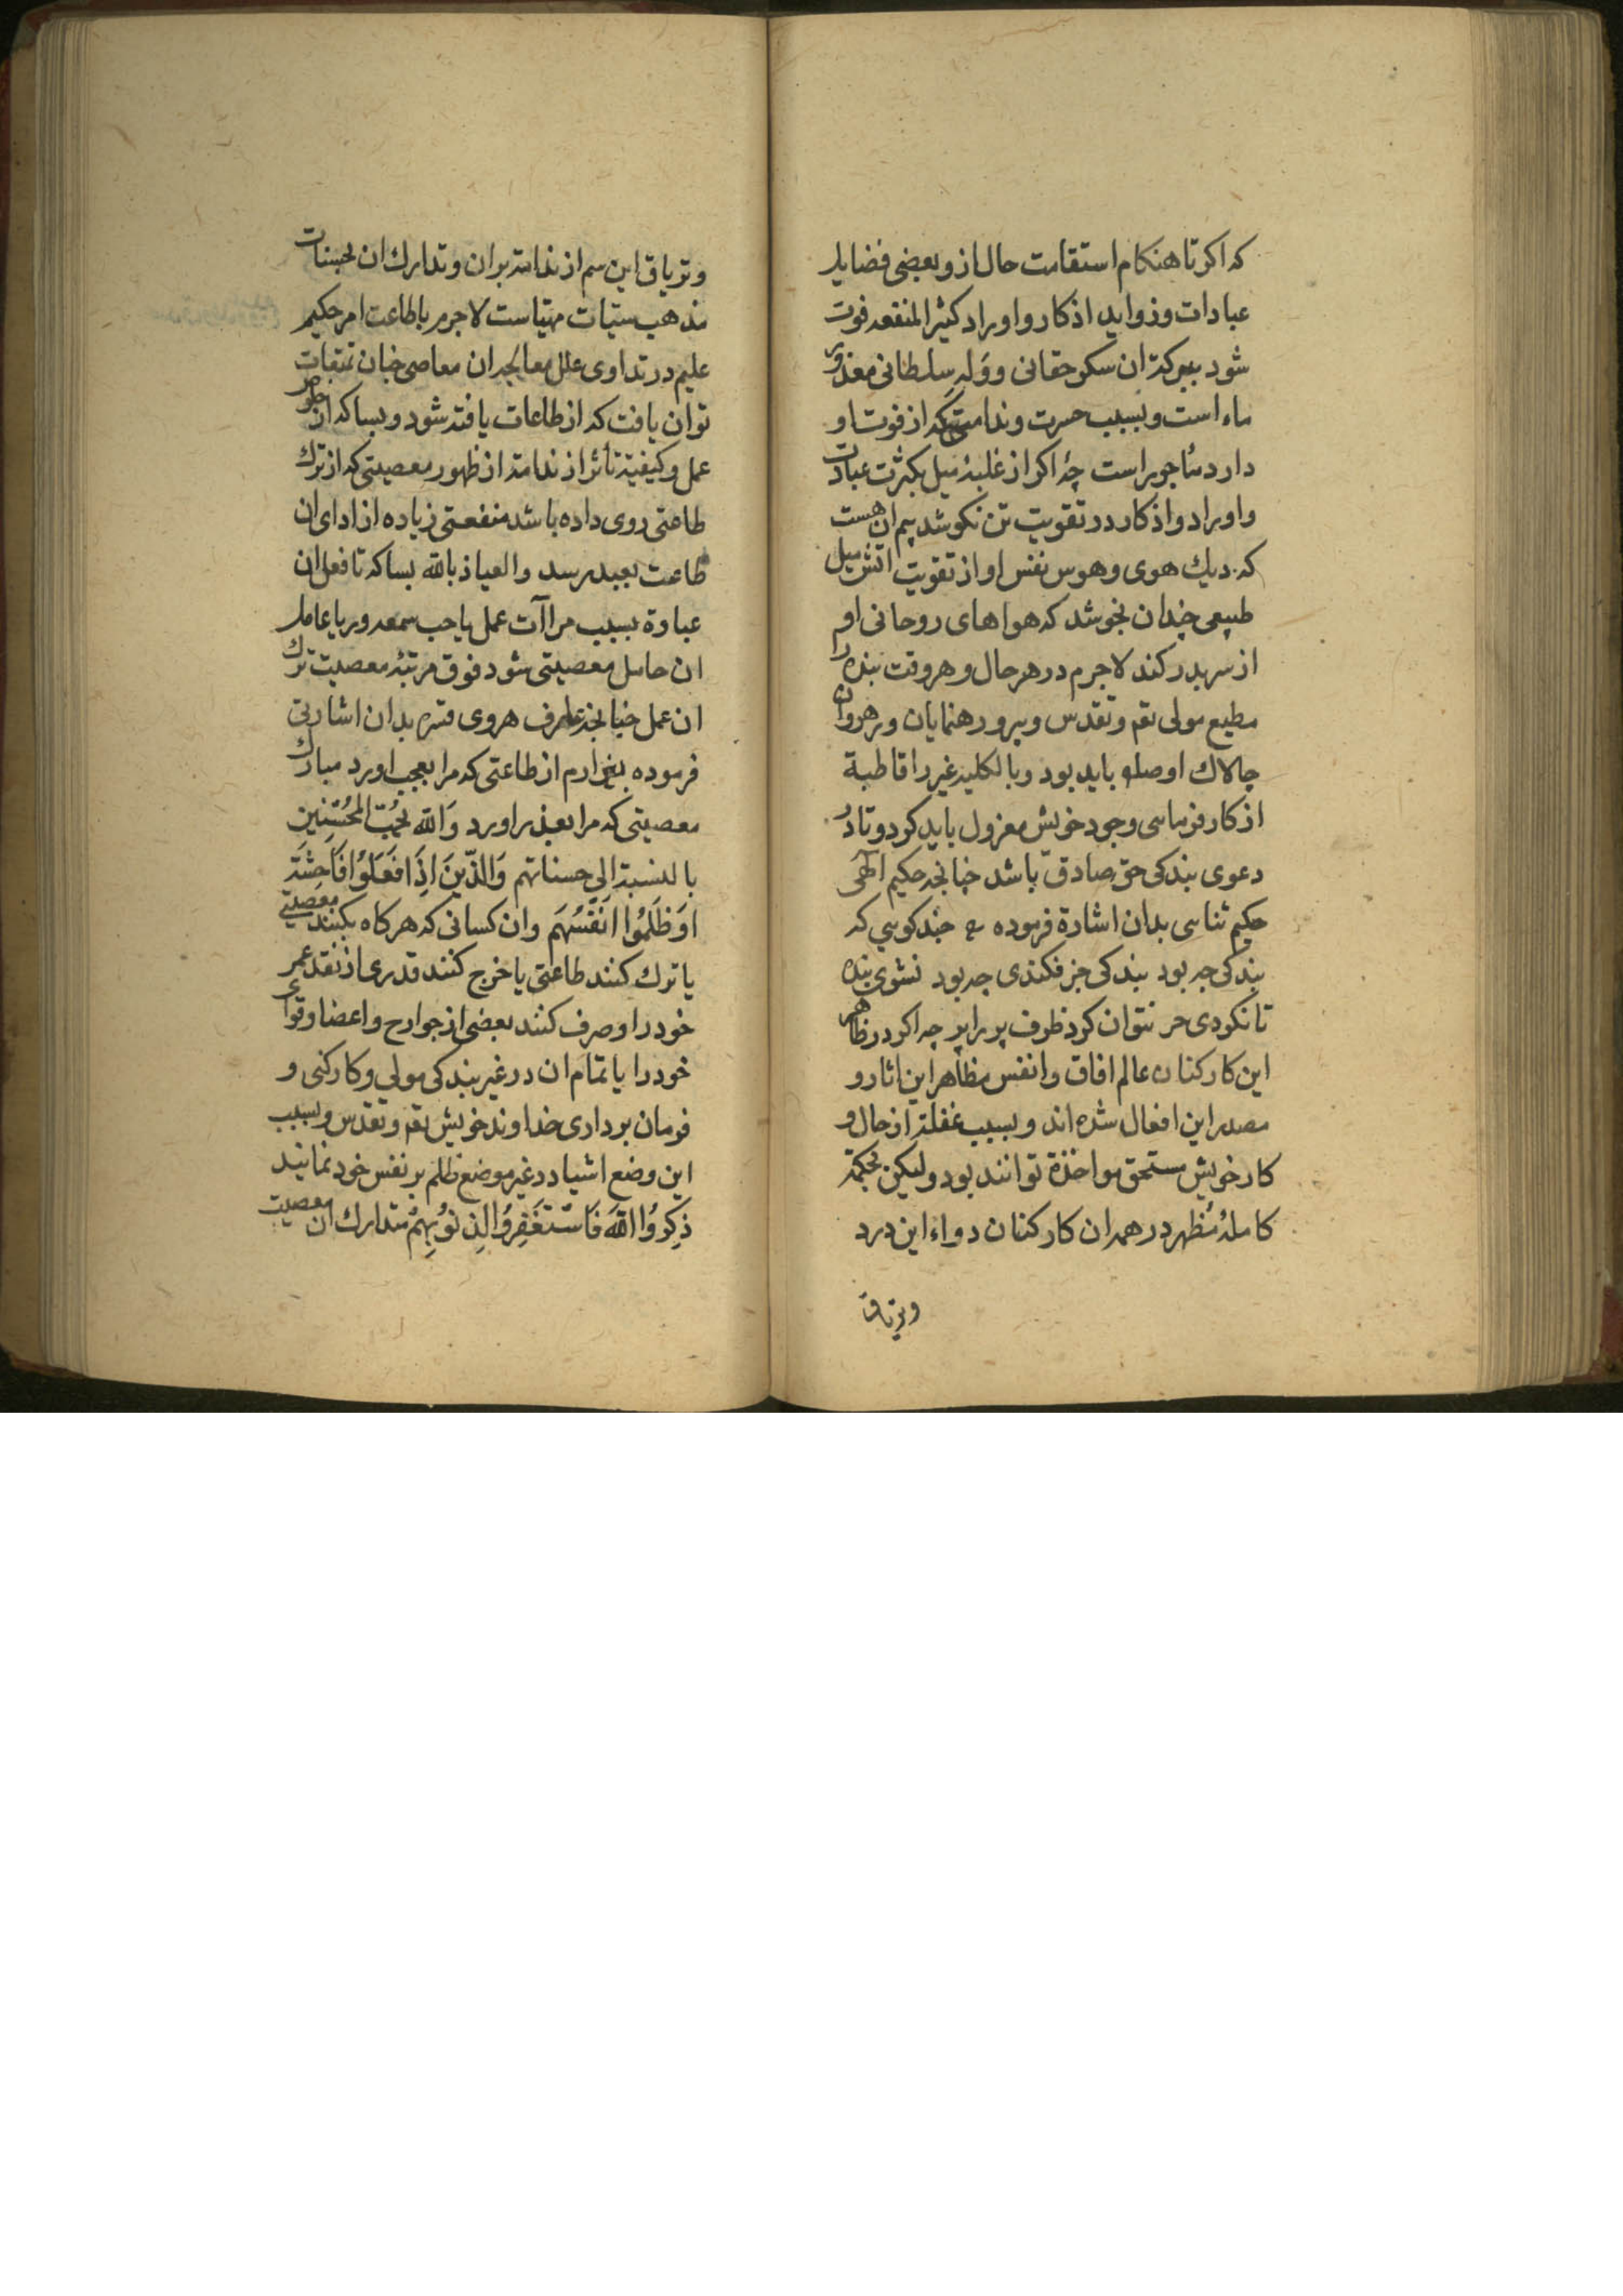 که اکر تا هنکام استقامت حال ازو بعضی فضایل
عبادات وزواید اذکار واوراد کثیر المنفعه فوت
شود ببرکة ان سکر حقانی ووَلهِ سلطانی معذور
ماء است وبسبب حسرت وندامتی که از فوت او
دارد مأجور است چه اکر از غلبهٔ میل بکثرت عبادت
واوراد واذکار در تقویت تن نکوشد بیم ان هست
که دیك هوی وهوس نفس او از تقویت اتش میل
طبیعی چندان بجوشد که هواهای روحانی او
از سر بدر کند لاجرم در هر حال وهر وقت بنده را
مطیع مولی تع وتقدس وپیرو رهنمایان ورهروان
چالاك او صلو باید بود وبالکلیه غیر را قاطبة
از کار فرمایی وجود خویش معزول باید کرد وتا در
دعوی بندکی حق صادق باشد چنانچه حکیم الهی
حکیم ثنایی بدان اشارة فرموده چند کویی که
بندکی چه بود بندکی جز فکندی چه بود نشوی بنده
تا نکردی حر نتوان کرد ظرف پر را پر چه اکر در ظاهر
این کارکنان عالم افاق وانفس مظاهر این اثار و
مصدر این افعال شده اند وبسبب غفلة از حال و
کار خویش مستحق مواخذة توانند بود ولیکن بحکمة
کاملهٔ مُظهر در همه ان کارکنان دواء این درد
وتریاق
وتریاق این سم از ندامة بران وتدارك ان بحسنات
مذهب سیّات مهیّاست لاجرم باطاعت امر حکیم
علیم در تداوی علل معالجه ان معاصی چنان تمتعات
توان یافت که از طاعات یافته شود وبسا که از جوهر
عمل وکیفیة تأثر از ندامة از ظهور معصیتی که از ترك
طاعتی روی داده باشد منفعتی زیاده از ادای ان
طاعت بعبد رسد والعیاذ بالله بسا که تا فعل ان
عبادة بسبب مراآت عمل یا حب سمعه وریا عامل
ان حامل معصیتی شود فوق مرتبهٔ معصیت ترك
ان عمل چنانچه عارف هروی قدس سره بدان اشارتی
فرموده بیزارم از طاعتی که مرا بعجب اورد مبارك
معصیتی که مرا بعذر اورد وَالله یُحِبُّ المُحْسِنِین
بالنسبة الی حسناتهم وَالَّذِینَ اِذَا فَعَلُوْا فَاحِشَةً
اَوْ ظَلَمُوا اَنْفُسَهُم وان کسانی که هرکاه بکنند معصیتی
یا ترك کنند طاعتی یا خرج کنند قدری از نقد عمر
خود را وصرف کنند بعضی از جوارح واعضا وقوای
خود را یا تمام ان در غیر بندکی مولی وکارکنی و
فرمان برداری خداوند خویش تع وتقدس وبسبب
این وضع اشیا در غیر موضع ظلم بر نفس خود نمایند
ذَکِرُوا اللهَ فَاسْتَغْفَرُوا لِذُنُوْبِهِمْ متدارك ان معصیت